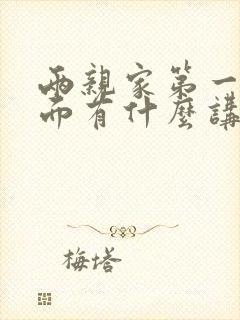 兩親家第一
而有什麼講
梅塔